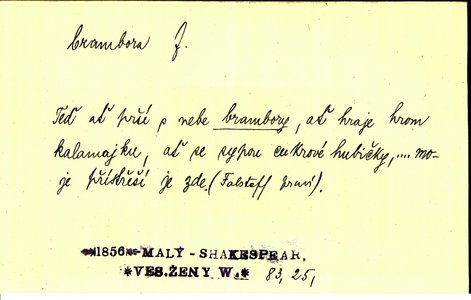 brambora f.
Teď ať prší s nebe brambory, ať hraje hrom
kalamajku, ať se sypou cukrové hubičky, .... mo-
je přístřeší je zde. (Falstaff praví).
*1856*-MALÝ - SHAKESPEAR,
*VES.ŽENY W.* 83, 25,